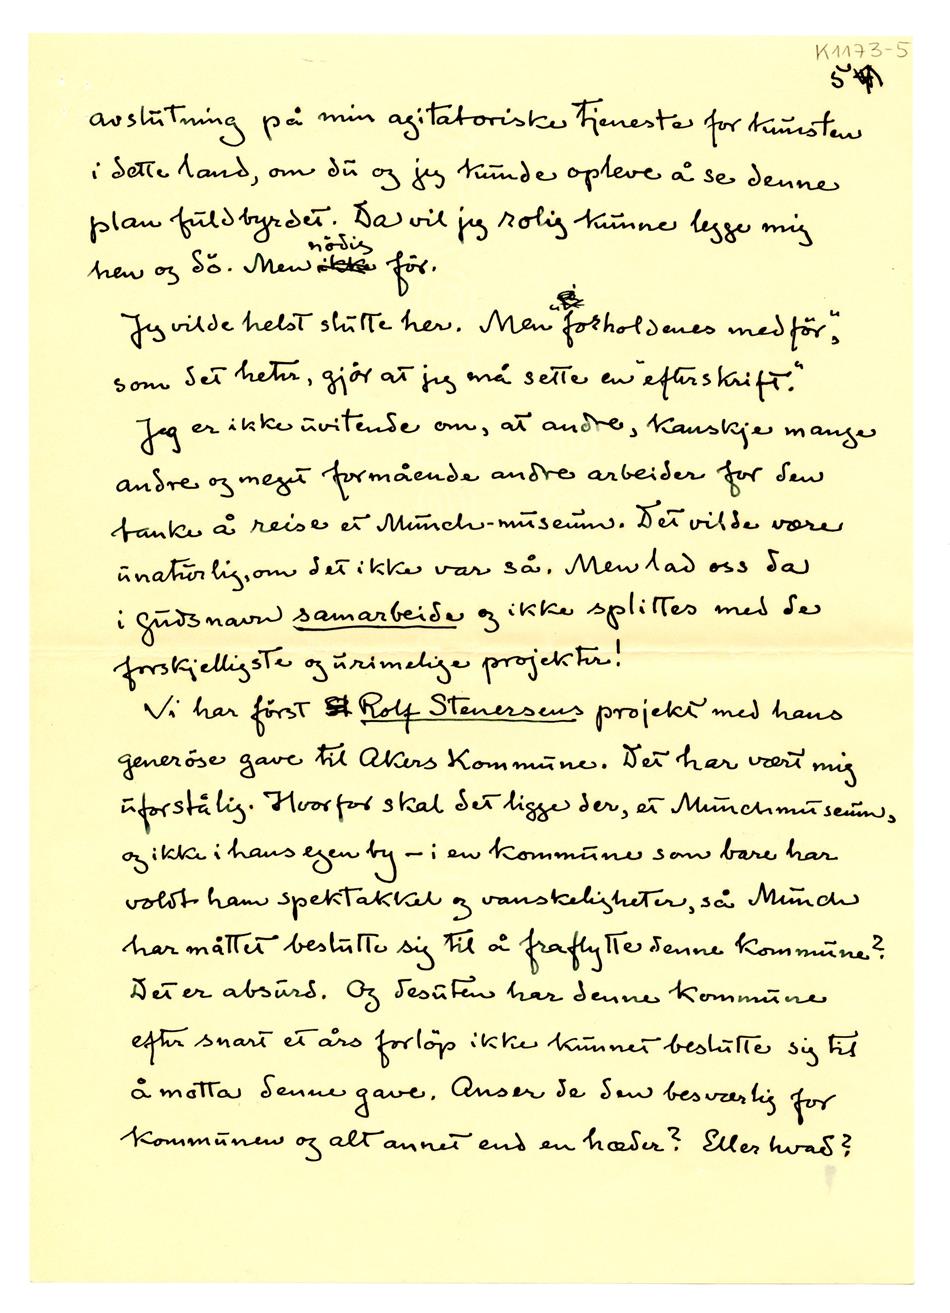 K1173-5
5
avslutning på min agitatoriske tjeneste for kunsten
i dette land, om du og jeg kunde opleve å se denne
plan fuldbyrdet. Da vil jeg rolig kunne legge mig
nödig
hen og dö. Men ikke för.
Jeg vilde helst slutte her. Men "forholdenes medför",
som det heter, gjör at jeg må sette en "efterskrift."
Jeg er ikke uvitende om, at andre, kanskje mange
andre og meget formående andre arbeider for den
tanke å reise et Munch-museum. Det vilde være
unaturlig, om det ikke var så. Men lad oss da
i Guds navn samarbeide og ikke splittes med de
forskjelligste og urimelige projekter!
Vi har först St Rolf Stenersens projekt med hans
generöse gave til Akers Kommune. Det har vært mig
uforstålig. Hvorfor skal det ligge der, et Munchmuseum,
og ikke i hans egen by – i en kommune som bare har
voldt ham spektakkel og vanskeligheter, så Munch
har måttet beslutte sig til å fraflytte denne kommune?
Det er absurd. Og desuten har denne kommune
efter snart et års forlöp ikke kunnet beslutte sig til
å motta denne gave. Anser de den besværlig for
kommunen og alt annet end en hæder? Eller hvad?